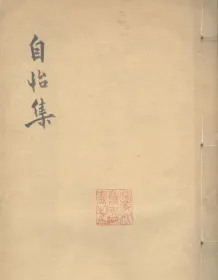 自怡集